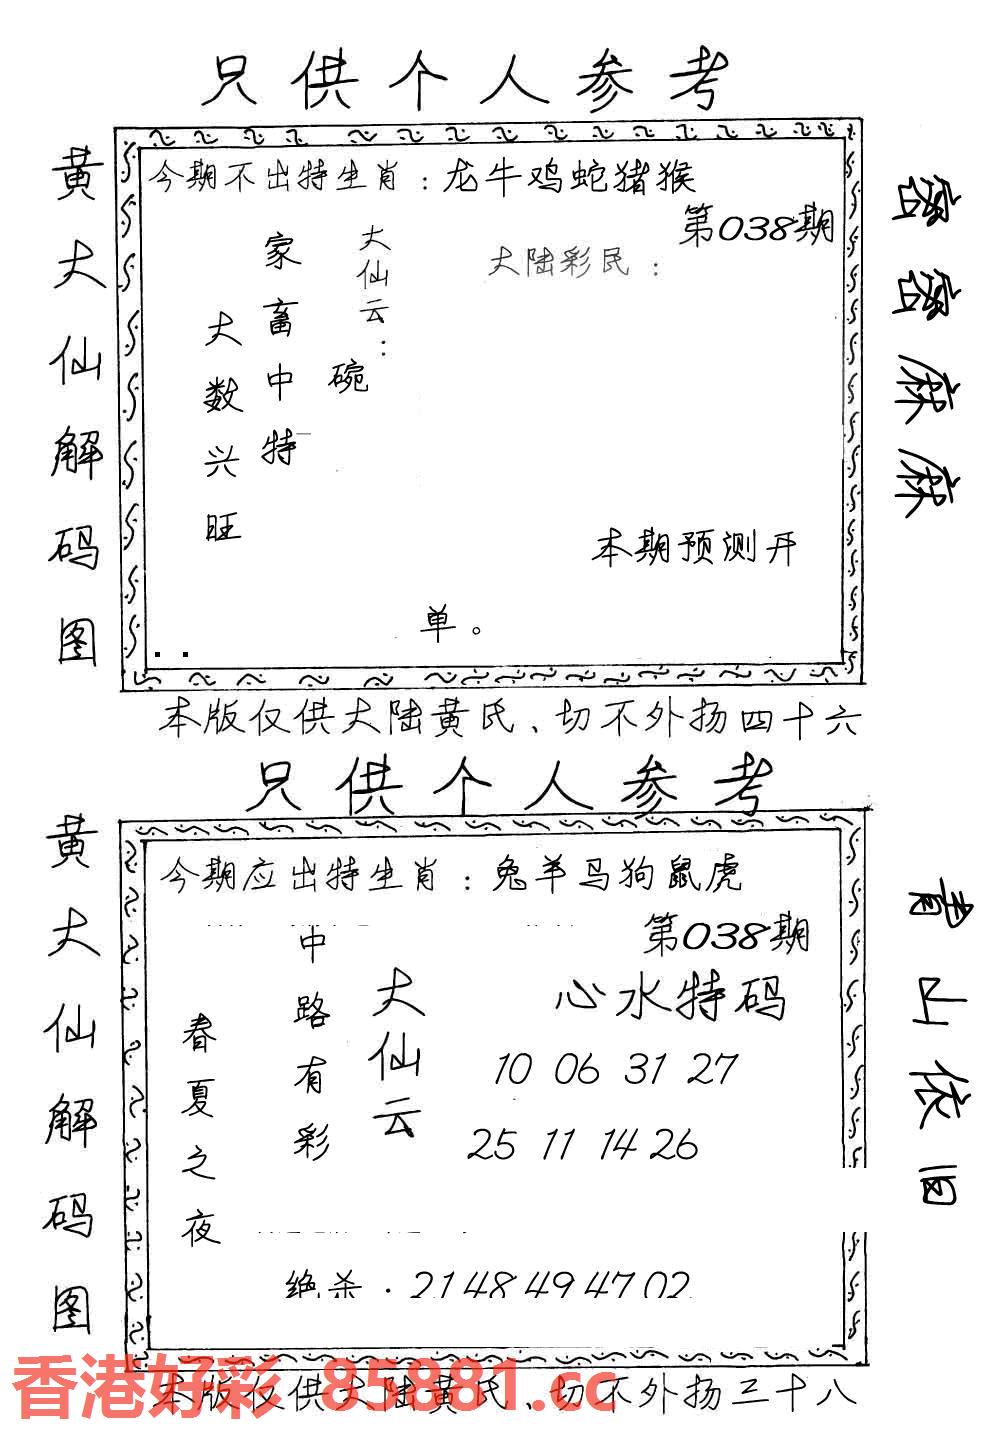 只供个人参考
黄大仙解码图
今期不出特生肖：龙牛鸡蛇猪猴
第038期
大陆彩民：
大仙云：
碗
家畜中特
大数兴旺
本期预测开
单。
密密麻麻
本版仅供大陆黄氏、切不外扬四十六
只供个人参考
黄大仙解码图
今期应出特生肖：兔羊马狗鼠虎
第038期
心水特码
大仙云
中路有彩
春夏之夜
10 06 31 27
25 11 14 26
绝杀：21 48 49 47 02
青山依旧
本版仅供大陆黄氏、切不外扬三十八
香港好彩 85881.cc